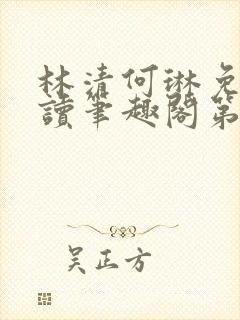 林清何琳免
讀筆趣閣第
吴正方